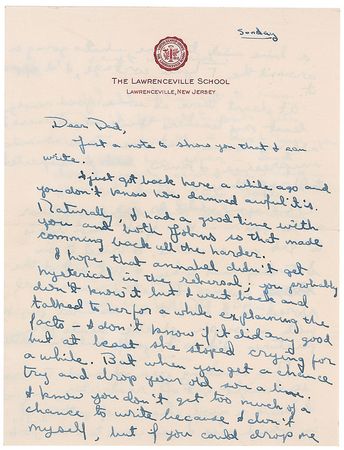 Sunday
THE LAWRENCEVILLE SCHOOL
LAWRENCEVILLE, NEW JERSEY
Dear Dad,
Just a note to show you that I can
write.
I just got back here a while ago and
you don't know how damned awful it is.
Naturally, I had a good time with
you and both Johns so that made
comming back all the harder.
I hope that annabel didn't get
hysterical in the rehersal; you probably
didn't know it but I went back and
talked to her for a while explaining the
facts - I don't know if it did any good
but at least she stoped crying for
a while. But when you get a chance
try and drop your old son a line.
I know you don't get too much of a
chance to write because I don't
myself, but if you could drop me